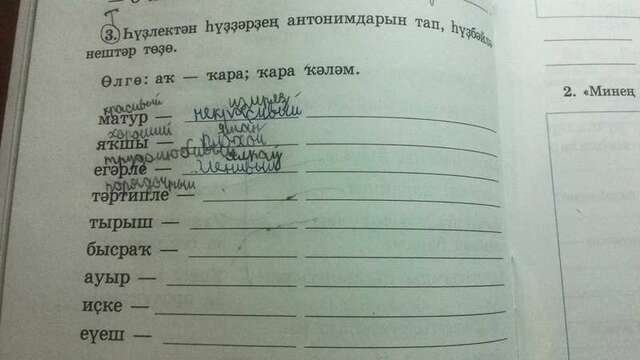 3. Һүҙлектән һүҙҙәрҙең антонимдарын тап, һүҙбәйлә
нештәр төҙө.
Өлгө: аҡ — ҡара; ҡара ҡәләм.
красивый
матур — некрасивый
хороший яман
яҡшы — плохой
трудолюбивый ялҡау
егәрле — Ленивый
порядочный
тәртипле —
тырыш —
бысраҡ —
ауыр —
иҫке —
еүеш —
2. «Минең